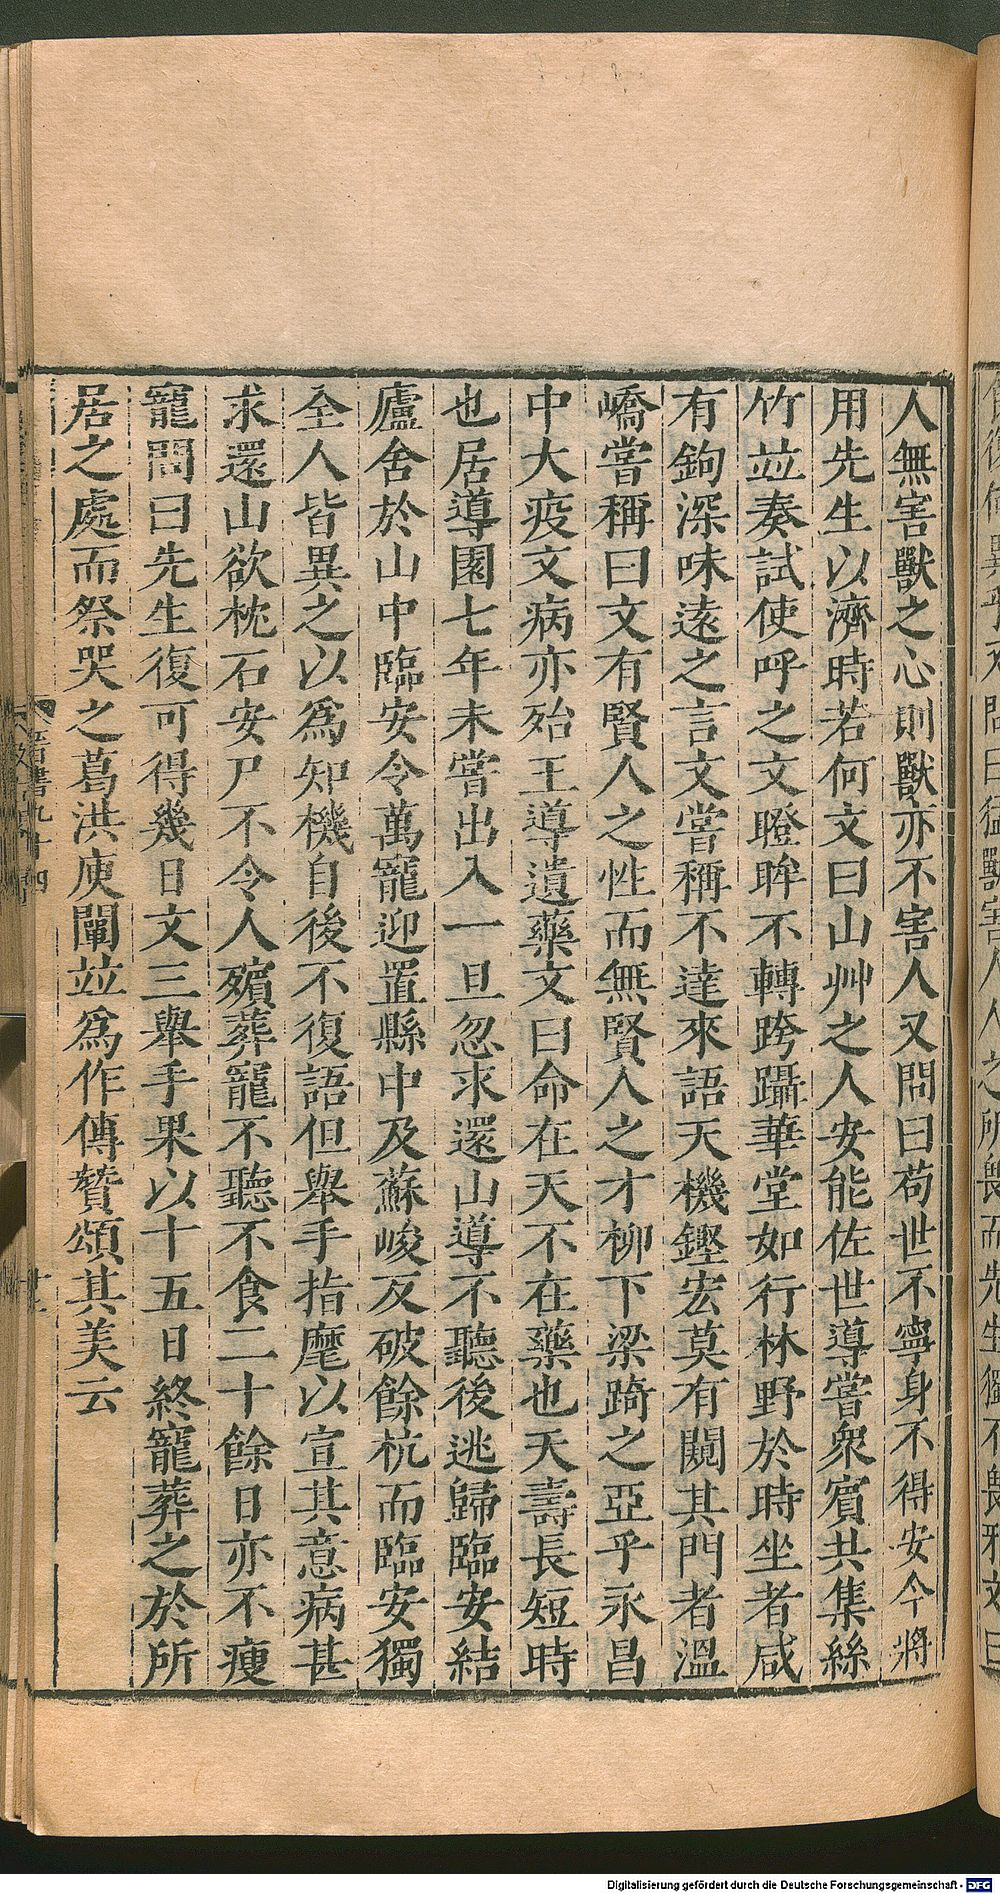 人無害獸之心則獸亦不害人又問曰苟世不寧身不得安今將
用先生以濟時若何文曰山艸之人安能佐世導嘗衆賓共集絲
竹竝奏試使呼之文瞪眸不轉跨躡華堂如行林野於時坐者咸
有鉤深味遠之言文嘗稱不達來語天機鏗宏莫有闚其門者溫
嶠嘗稱曰文有賢人之性而無賢人之才柳下梁踦之亞乎永昌
中大疫文病亦殆王導遺藥文曰命在天不在藥也夭壽長短時
也居導園七年未嘗出入一旦忽求還山導不聽後逃歸臨安結
廬舍於山中臨安令萬寵迎置縣中及蘇峻反破餘杭而臨安獨
全人皆異之以爲知機自後不復語但舉手指麾以宣其意病甚
求還山欲枕石安尸不令人殯葬寵不聽不食二十餘日亦不瘦
寵問曰先生復可得幾日文三舉手果以十五日終寵葬之於所
居之處而祭哭之葛洪庾闡竝爲作傳贊頌其美云
Digitalisierung gefördert durch die Deutsche Forschungsgemeinschaft - DFG